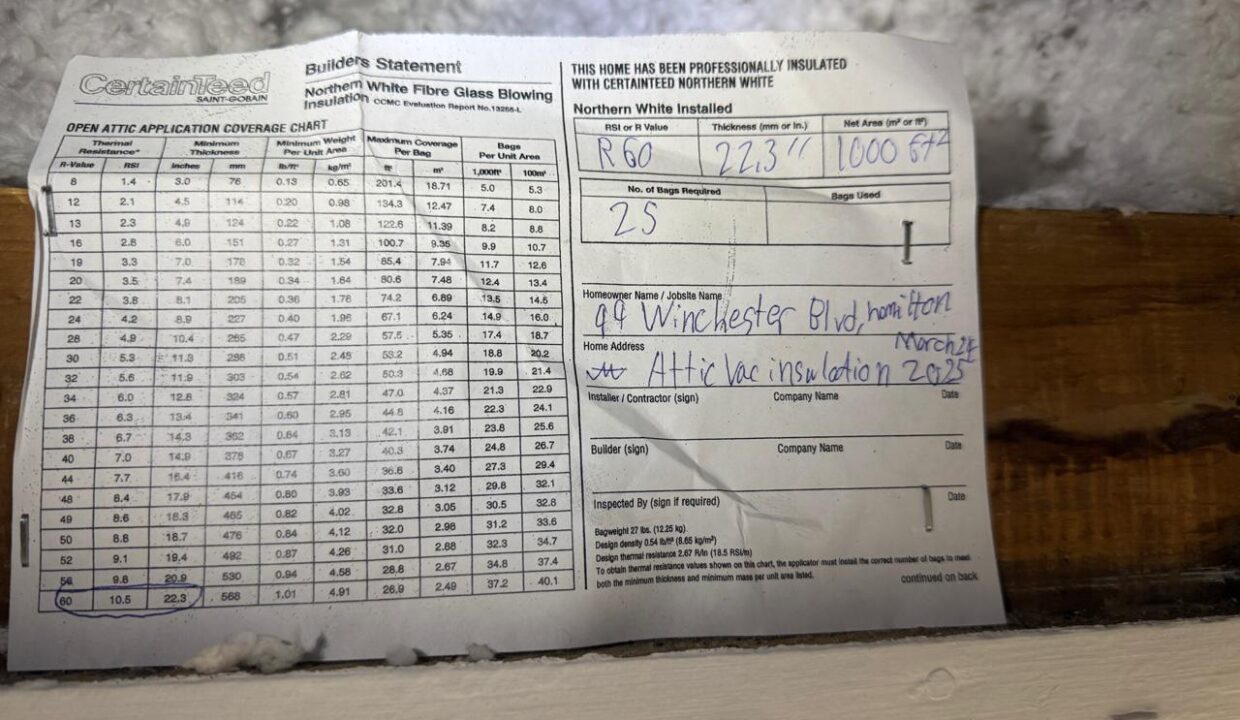 CertainTeed
SAINT-GOBAIN
Builders Statement
Northern White Fibre Glass Blowing
Insulation CCMC Evaluation Report No.13266-L
OPEN ATTIC APPLICATION COVERAGE CHART
Thermal Resistance* Minimum Thickness Minimum Weight Per Unit Area Maximum Coverage Per Bag Bags Per Unit Area
R-Value RSI inches mm lb/ft² kg/m² ft² m² 1,000ft² 100m²
8 1.4 3.0 76 0.13 0.65 201.4 18.71 5.0 5.3
12 2.1 4.5 114 0.20 0.98 134.3 12.47 7.4 8.0
13 2.3 4.9 124 0.22 1.08 122.6 11.39 8.2 8.8
16 2.8 6.0 151 0.27 1.31 100.7 9.35 9.9 10.7
19 3.3 7.0 178 0.32 1.54 85.4 7.94 11.7 12.6
20 3.5 7.4 189 0.34 1.64 80.6 7.48 12.4 13.4
22 3.8 8.1 205 0.36 1.76 74.2 6.89 13.5 14.5
24 4.2 8.9 227 0.40 1.96 67.1 6.24 14.9 16.0
28 4.9 10.4 265 0.47 2.29 57.5 5.35 17.4 18.7
30 5.3 11.3 286 0.51 2.48 53.2 4.94 18.8 20.2
32 5.6 11.9 303 0.54 2.62 50.3 4.68 19.9 21.4
34 6.0 12.8 324 0.57 2.81 47.0 4.37 21.3 22.9
36 6.3 13.4 341 0.60 2.95 44.8 4.16 22.3 24.1
38 6.7 14.3 362 0.64 3.13 42.1 3.91 23.8 25.6
40 7.0 14.9 378 0.67 3.27 40.3 3.74 24.8 26.7
44 7.7 16.4 416 0.74 3.60 36.6 3.40 27.3 29.4
48 8.4 17.9 454 0.80 3.93 33.6 3.12 29.8 32.1
49 8.6 18.3 465 0.82 4.02 32.8 3.05 30.5 32.8
50 8.8 18.7 476 0.84 4.12 32.0 2.98 31.2 33.6
52 9.1 19.4 492 0.87 4.26 31.0 2.88 32.3 34.7
56 9.8 20.9 530 0.94 4.58 28.8 2.67 34.8 37.4
60 10.5 22.3 568 1.01 4.91 26.9 2.49 37.2 40.1
THIS HOME HAS BEEN PROFESSIONALLY INSULATED
WITH CERTAINTEED NORTHERN WHITE
Northern White Installed
RSI or R Value Thickness (mm or in.) Net Area (m² or ft²)
R60 22.3" 1000 ft²
No. of Bags Required Bags Used
25
Homeowner Name / Jobsite Name
99 Winchester Blvd, hamilton
Home Address
March 24
Attic Vac insulation 2025
Installer / Contractor (sign) Company Name Date
Builder (sign) Company Name Date
Inspected By (sign if required) Date
Bagweight 27 lbs. (12.25 kg)
Design density 0.54 lb/ft³ (8.65 kg/m³)
Design thermal resistance 2.67 R/in (18.5 RSI/m)
To obtain thermal resistance values shown on this chart, the applicator must install the correct number of bags to meet
both the minimum thickness and minimum mass per unit area listed.
continued on back